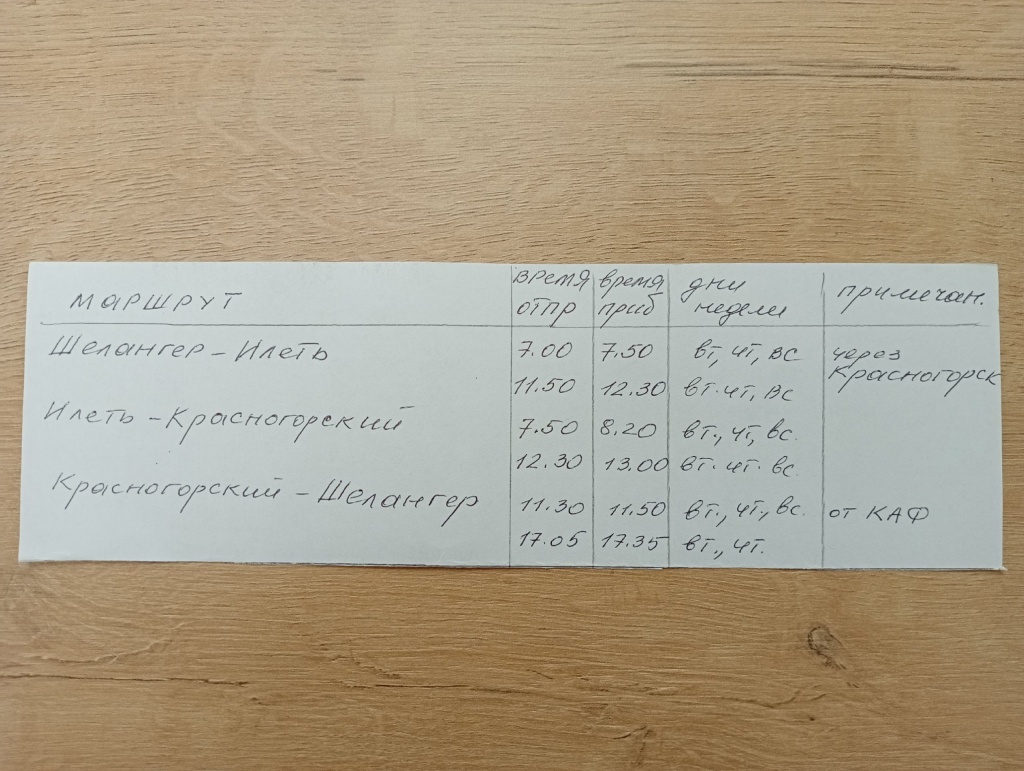 маршрут время отпр время приб дни недели примечан.
Шелангер - Илеть 7.00 7.50 вт, чт, вс через Красногорск
11.50 12.30 вт. чт, вс
Илеть - Красногорский 7.50 8.20 вт., чт, вс.
12.30 13.00 вт. чт. вс.
Красногорский - Шелангер 11.30 11.50 вт., чт., вс. от КАФ
17.05 17.35 вт., чт.